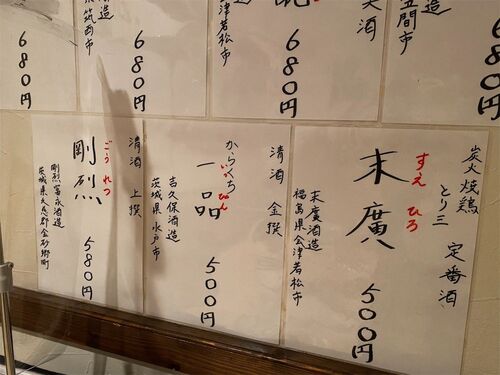 造
筑西市
680円
680円
会津若松市
680円
大酒
造
笠間市
680円
炭火焼鶏
とり三
定番酒
すえ ひろ
末廣
500円
末廣酒造
福島県会津若松市
清酒 金撰
からくち
いっ ぴん
一品
500円
吉久保酒造
茨城県水戸市
清酒 上撰
ごう れつ
剛烈
580円
剛烈富永酒造
茨城県久慈郡金砂郷町